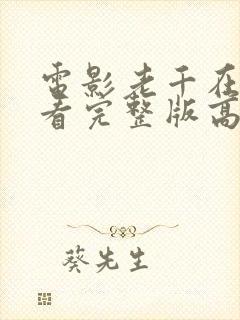 电影老千在
看完整版高
葵先生